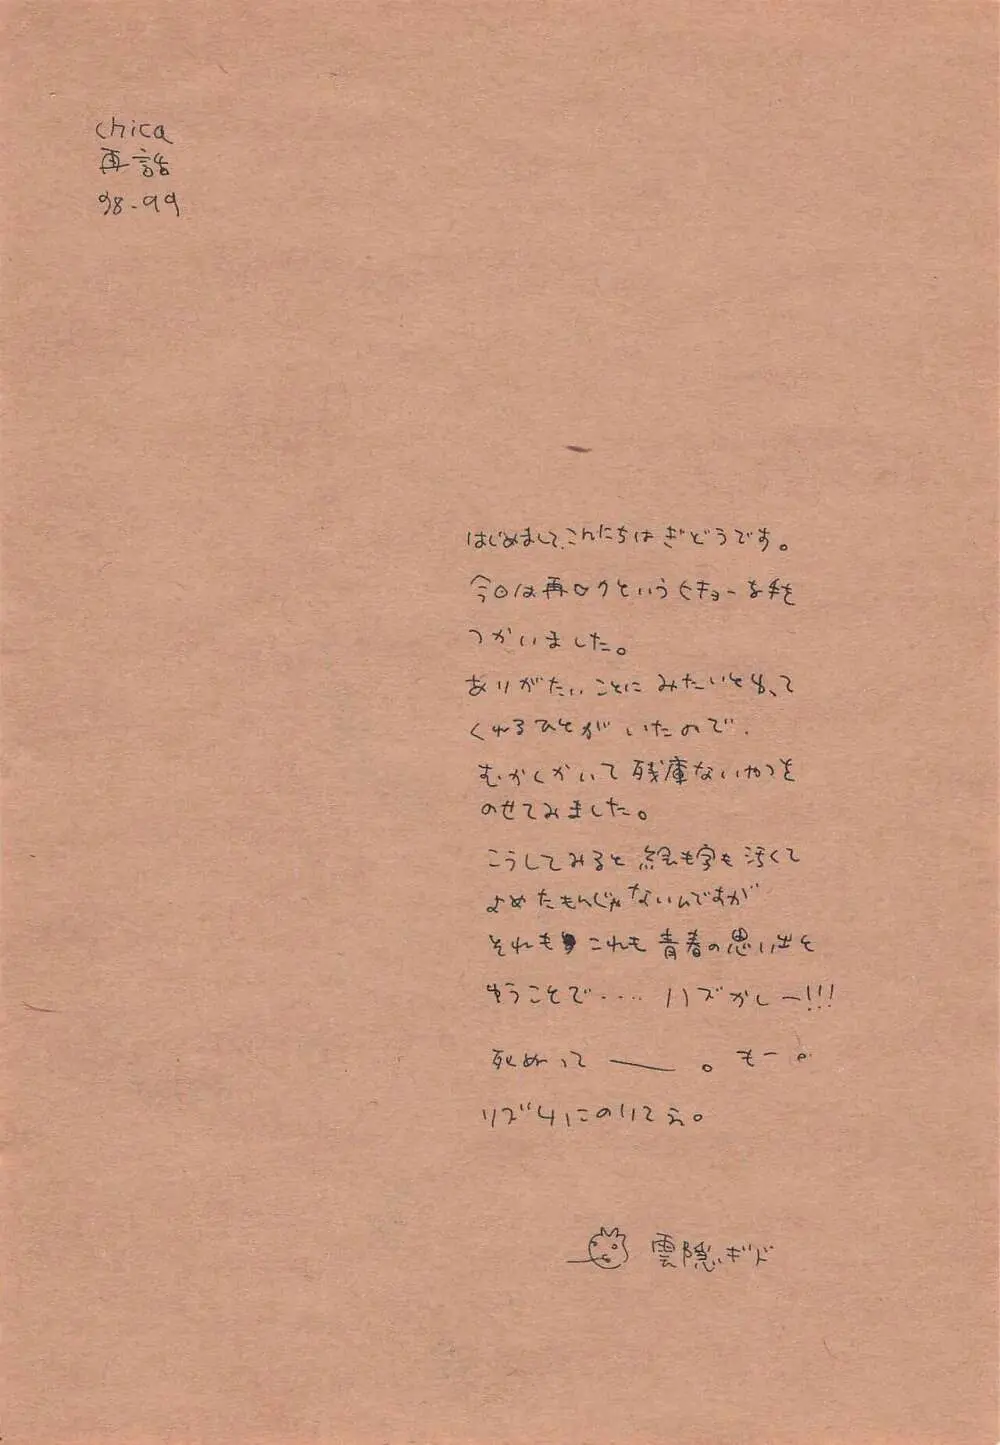 chica
再話
98-99
はじめまして、こんにちは ぎどうです。
今回は再ロクというヒキョーな手を
つかいました。
ありがたいことに みたいと思って
くれるひとが いたので、
むかしかいて 残庫ないやつを
のせてみました。
こうしてみると 絵も字も 汚くて
よめたもんじゃないんですが
それも これも 青春の思い出と
ゆうことで‥‥ ハズかしー!!!
死ぬって ――。 もー。
リズムにのりてぇ。
雲隠ギド